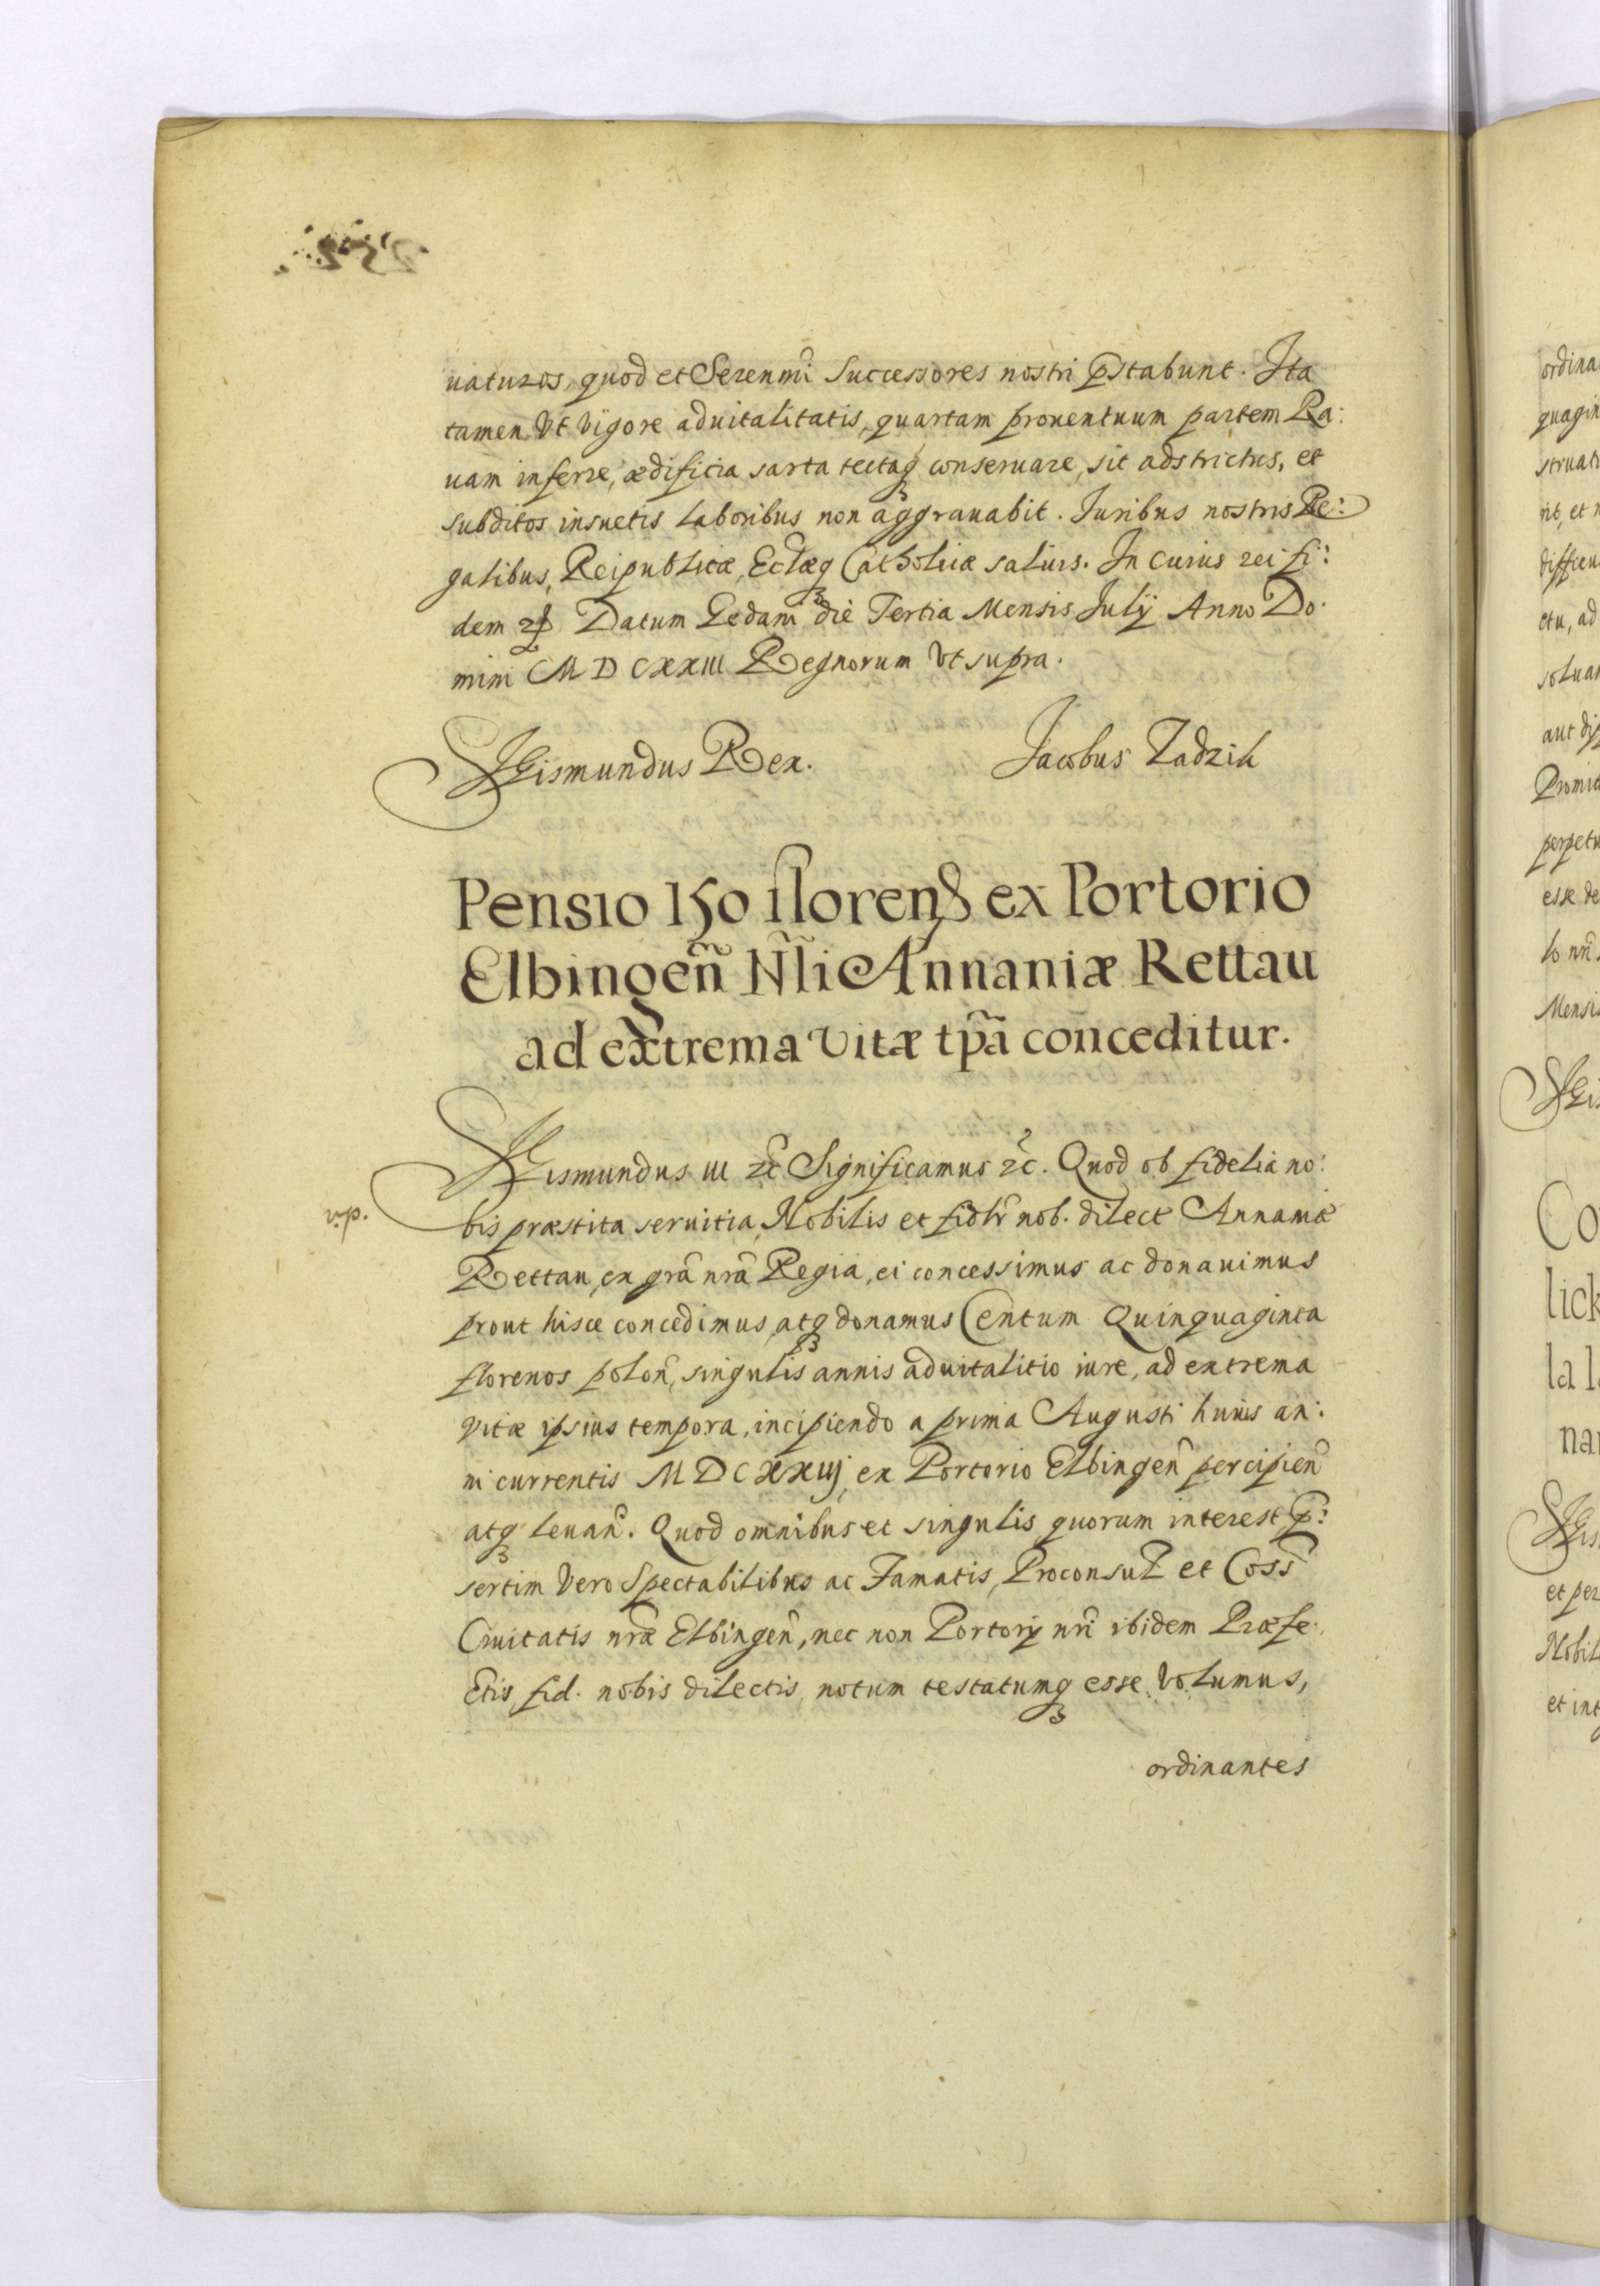 uaturos, quod et Serenmi Successores nostri pstabunt. Ita
tamen Vt vigore aduitalitatis, quartam prouentuum partem Ra:
uam inferre, ædificia sarta tectaq conseruare, sit adstrictus, et
subditos insuetis laboribus non aggrauabit. Iuribus nostris Re:
galibus, Reipublicæ, Ecclæq Catholicæ saluis. In Cuius rei fi:
dem Datum Gedani die Tertia Mensis Iulÿ Anno Do:
mini MDCXXIII Regnorum Vt supra.
Sigismundus Rex. Jacobus Zadzik
Pensio 150 florens ex Portorio
Elbingeñ Nli Annaniæ Rettau
ad extrema vitæ tpã conceditur.
Sigismundus III etc Significamus etc. Quod ob fidelia no:
v.p.
bis præstita seruitia, Nobilis et fidlr nob. dilect Annaniæ
Rettau, ex grã nrã Regia, ei concessimus ac donauimus
prout hisce concedimus, atq donamus Centum Quinquaginta
florenos poloñ, singulis annis aduitalitio iure, ad extrema
vitæ ipsius tempora, incipiendo a prima Augusti huius an:
ni currentis MDCXXIIJ, ex Portorio Elbingeñ percipieñ
atq leuañ. Quod omnibus et singulis quorum interest p:
sertim Vero Spectabilibus ac Famatis, Proconsul et Coss
Ciuitatis nræ Elbingeñ, nec non Portorÿ nri ibidem Præfe:
ctis, fid. nobis dilectis, notum testatumq esse Volumus,
ordinantes
ordina
quagin
struat
rit, et n
difficu
ctu, ad
soluan
aut dis
Promit
perpetu
esse de
lo nri
Mensis
Sigi
Co
lick
la l
nan
Sigis
et per
Nobil
et int